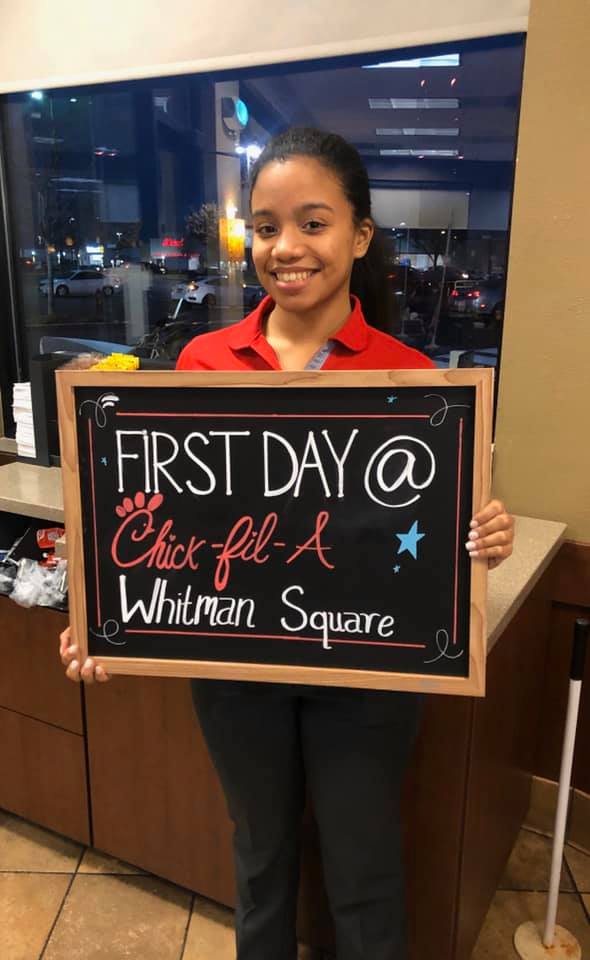 FIRST DAY @
Chick-fil-A
Whitman Square